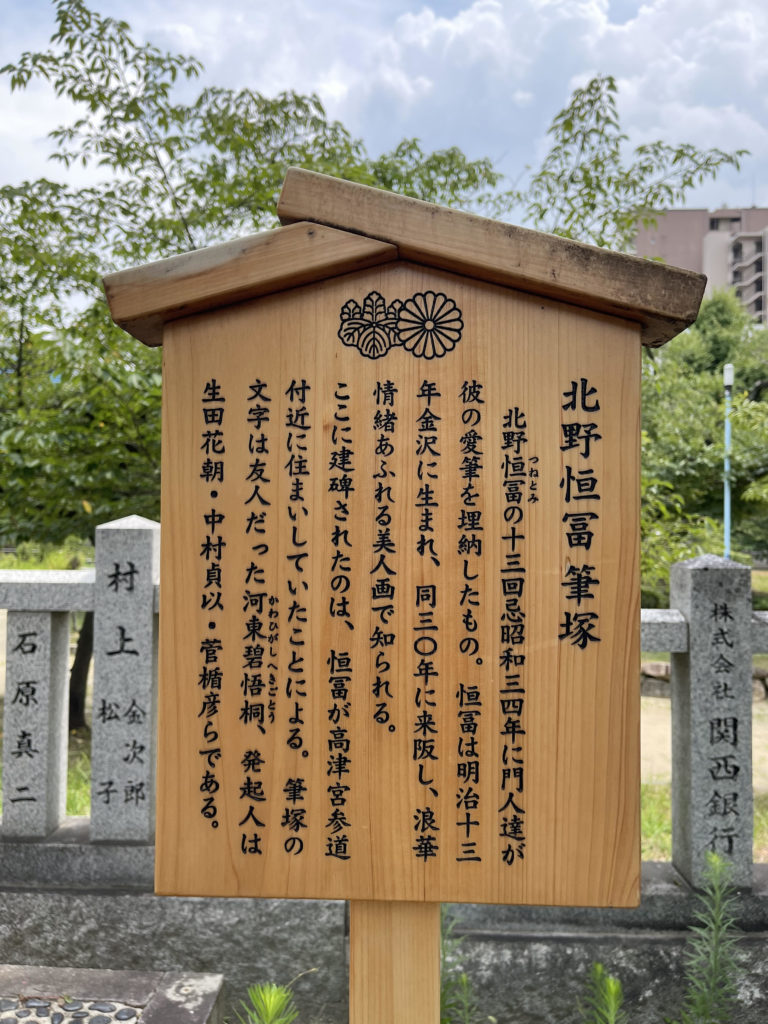 北野恒冨筆塚
北野恒冨の十三回忌昭和三四年に門人達が
つねとみ
彼の愛筆を埋納したもの。恒冨は明治十三
年金沢に生まれ、同三〇年に来阪し、浪華
情緒あふれる美人画で知られる。
ここに建碑されたのは、恒冨が高津宮参道
付近に住まいしていたことによる。筆塚の
文字は友人だった河東碧悟桐、発起人は
かわひがしへきごとう
生田花朝・中村貞以・菅楯彦らである。
株式会社関西銀行
村上金次郎
松子
石原真二